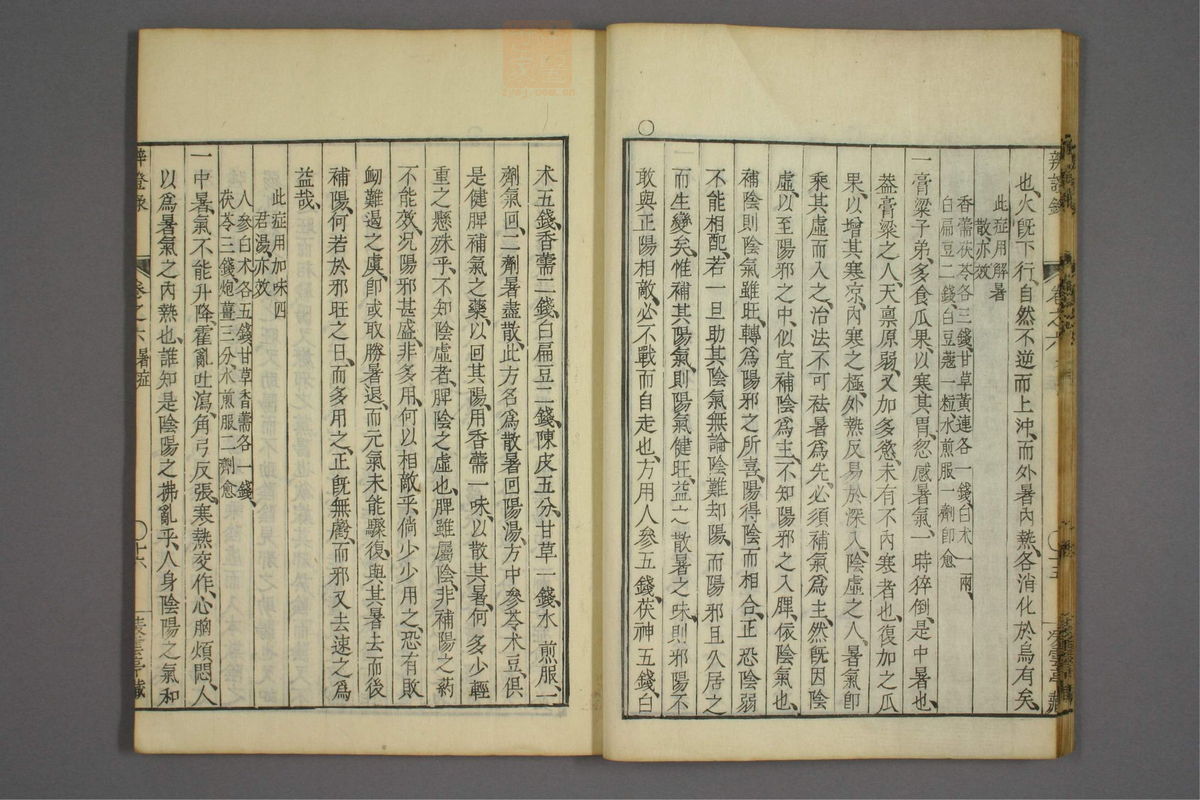 也火旣下行自然不逆而上沖而外暑內熱各消化於烏有矣
此症用解暑
散亦效
香薷茯苓各三錢甘草黃連各一錢白术一兩
白扁豆二錢白豆蔻一粒水煎服一劑卽愈
一膏粱子弟多食瓜果以寒其胃忽感暑氣一時猝倒是中暑也
葢膏粱之人天禀原弱又加多慾未有不內寒者也復加之瓜
果以增其寒凉內寒之極外熱反易於深入陰虛之人暑氣卽
乘其虛而入之治法不可祛暑爲先必須補氣爲主然旣因陰
虛以至陽邪之中似宜補陰爲主不知陽邪之入脾依陰氣也
補陰則陰氣雖旺轉爲陽邪之所喜陽得陰而相合正恐陰弱
不能相配若一旦助其陰氣無論陰難却陽而陽邪且久居之
而生變矣惟補其陽氣則陽氣健旺益之散暑之味則邪陽不
敢與正陽相敵必不戰而自走也方用人參五錢茯神五錢白
术五錢香薷二錢白扁豆二錢陳皮五分甘草一錢水煎服一
劑氣回二劑暑盡散此方名爲散暑回陽湯方中參苓术豆俱
是健脾補氣之藥以回其陽用香薷一味以散其暑何多少輕
重之懸殊乎不知陰虛者脾陰之虛也脾雖屬陰非補陽之葯
不能效况陽邪甚盛非多用何以相敵乎倘少少用之恐有敗
衂難遏之虞卽或取勝暑退而元氣未能驟復與其暑去而後
補陽何若於邪旺之日而多用之正旣無虧而邪又去速之爲
益哉
此症用加味四
君湯亦效
人參白术各五錢甘草香薷各一錢
茯苓三錢炮薑三分水煎服二劑愈
一中暑氣不能升降霍亂吐瀉角弓反張寒熱交作心胸煩悶人
以爲暑氣之內熱也誰知是陰陽之拂亂乎人身陰陽之氣和
辨證录
卷之六
暑症